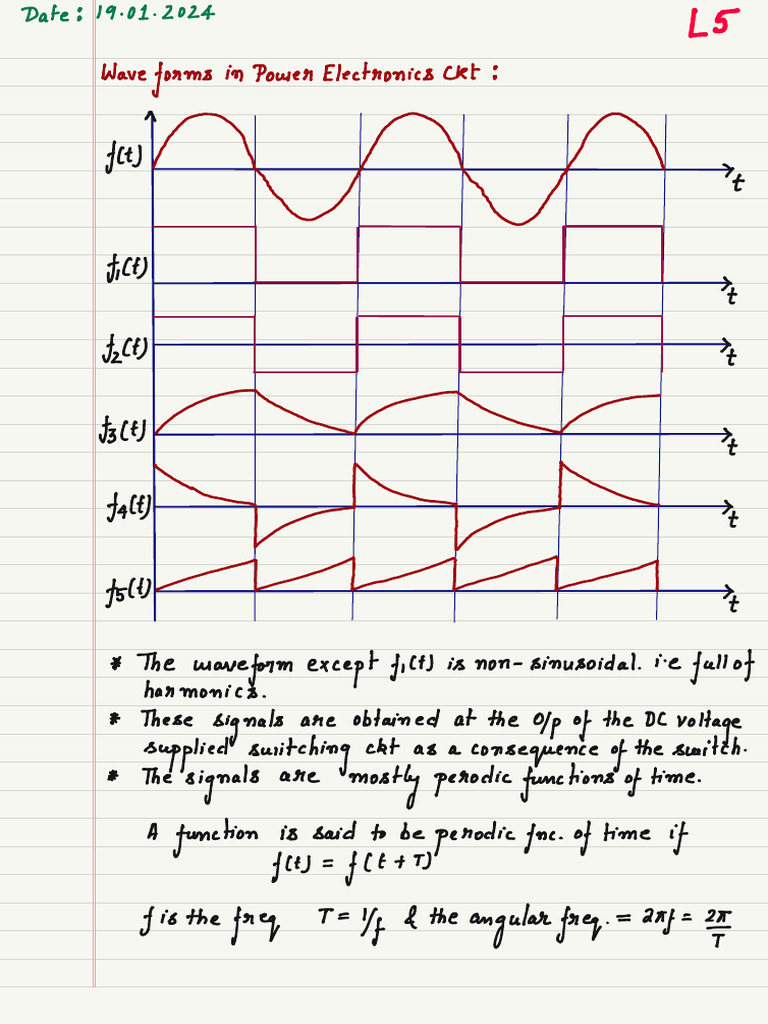 Date: 19.01.2024
L5
Wave forms in Power Electronics Ckt :
f(t)
t
f₁(t)
t
f₂(t)
t
f₃(t)
t
f₄(t)
t
f₅(t)
t
* The waveform except f₁(t) is non-sinusoidal. i.e full of
harmonics.
* These signals are obtained at the O/p of the DC voltage
supplied switching ckt as a consequence of the switch.
* The signals are mostly perodic functions of time.
A function is said to be perodic fnc. of time if
f(t) = f(t+T)
f is the freq T = 1/f & the angular freq. = 2πf = 2π/T